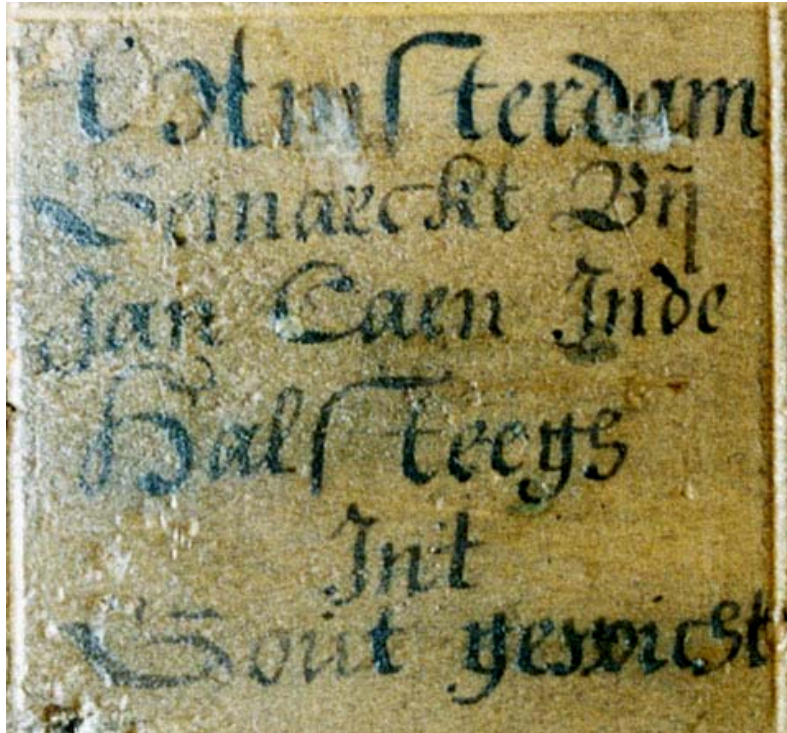 t'Amsterdam
Gemaeckt Bij
Jan Caen Inde
Halsteegh
Int
Gout gewicht